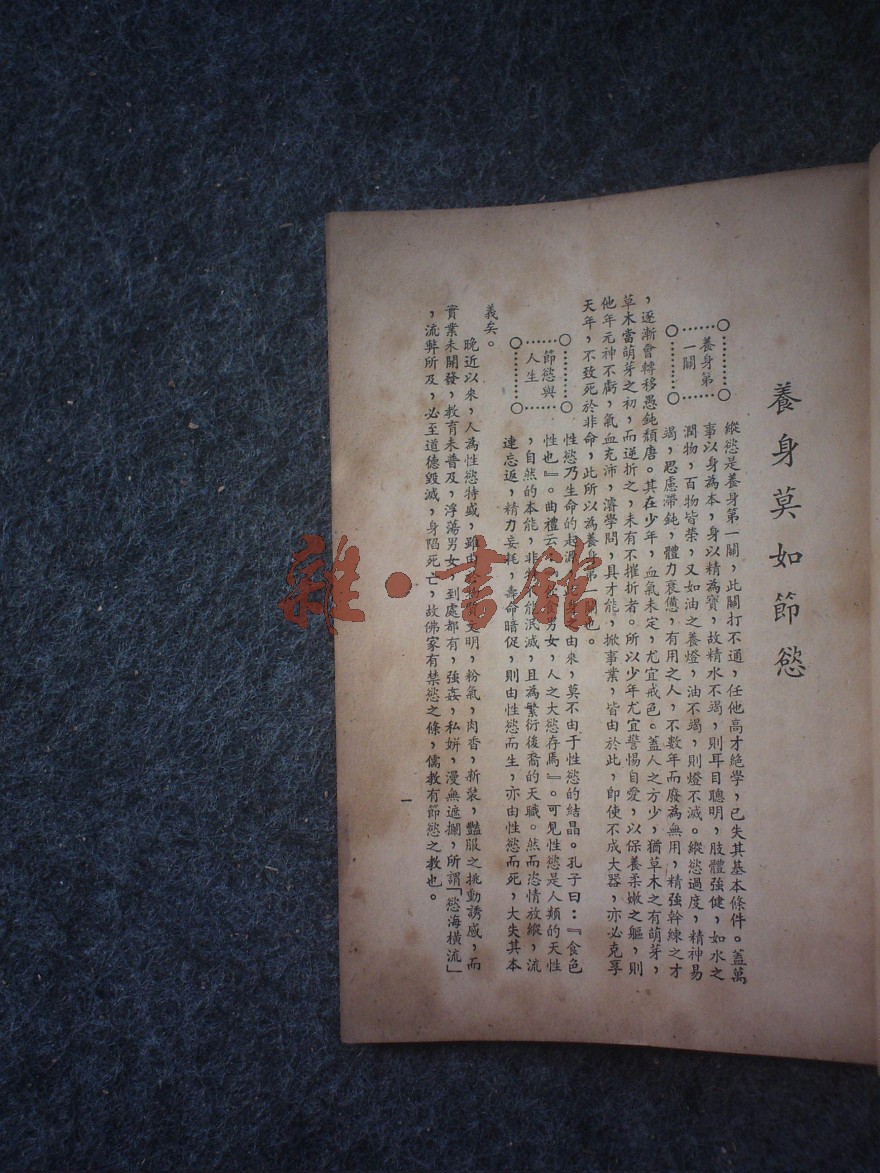 養身莫如節慾
養身第
一關
縱慾是養身第一關，此關打不通，任他高才絕學，已失其基本條件。蓋萬
事以身為本，身以精為寶，故精水不竭，則耳目聰明，肢體強健，如水之
潤物，百物皆榮，又如油之養燈，油不竭，則燈不滅。縱慾過度，精神易
竭，思慮滯鈍，體力衰憊，有用之人，不數年而廢為無用，精強幹練之才
，逐漸會轉移愚鈍頹唐。其在少年，血氣未定，尤宜戒色。蓋人之方少，猶草木之有萌芽，
草木當萌芽之初，而逆折之，未有不摧折者。所以少年尤宜警惕自愛，以保養柔嫩之軀，則
他年元神不虧，氣血充沛，濬學問，具才能，掀事業，皆由於此，即使不成大器，亦必克享
天年，不致死於非命，此所以為養身第一關也。
節慾與
人生
性慾乃生命的起源，由來，莫不由于性慾的結晶。孔子曰：『食色
性也』。曲禮云：食男女，人之大慾存焉』。可見性慾是人類的天性
，自然的本能，非能泯滅，且為繁衍後裔的天職。然而恣情放縱，流
連忘返，精力妄耗，壽命暗促，則由性慾而生，亦由性慾而死，大失其本
義矣。
晚近以來，人為性慾特盛，雖由文明，粉氣，肉香，新裝，豔服之挑動誘惑，而
實業未開發，教育未普及，浮蕩男女，到處都有，強姦，私姘，漫無遮攔，所謂「慾海橫流」
，流弊所及，必至道德毀滅，身陷死亡，故佛家有禁慾之條，儒教有節慾之教也。
一
雜·書館